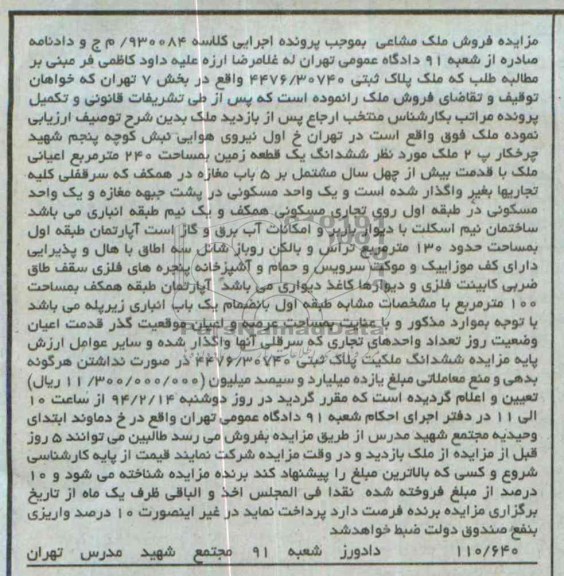 مزایده فروش ملک مشاعی بموجب پرونده اجرایی کلاسه ۹۳۰۰۸۴/ م ج و دادنامه
صادره از شعبه ۹۱ دادگاه عمومی تهران له غلامرضا ارزه علیه داود کاظمی فر مبنی بر
مطالبه طلب که ملک پلاک ثبتی ۴۴۷۶/۳۰۷۴۰ واقع در بخش ۷ تهران که خواهان
توقیف و تقاضای فروش ملک رانموده است که پس از طی تشریفات قانونی و تکمیل
پرونده مراتب بکارشناس منتخب ارجاع پس از بازدید ملک بدین شرح توصیف ارزیابی
نموده ملک فوق واقع است در تهران خ اول نیروی هوایی نبش کوچه پنجم شهید
چرخکار پ ۲ ملک مورد نظر ششدانگ یک قطعه زمین بمساحت ۲۴۰ مترمربع اعیانی
ملک با قدمت بیش از چهل سال مشتمل بر ۵ باب مغازه در همکف که سرقفلی کلیه
تجاریها بغیر واگذار شده است و یک واحد مسکونی در پشت جبهه مغازه و یک واحد
مسکونی در طبقه اول روی تجاری مسکونی همکف و یک نیم طبقه انباری می باشد
ساختمان نیم اسکلت با دیوار باربر و امکانات آب برق و گاز است آپارتمان طبقه اول
بمساحت حدود ۱۳۰ مترمربع تراس و بالکن روباز شامل سه اطاق با هال و پذیرایی
دارای کف موزاییک و موکت سرویس و حمام و آشپزخانه پنجره های فلزی سقف طاق
ضربی کابینت فلزی و دیوارها کاغذ دیواری می باشد آپارتمان طبقه همکف بمساحت
۱۰۰ مترمربع با مشخصات مشابه طبقه اول بانضمام یک باب انباری زیرپله می باشد
با توجه بموارد مذکور و با عنایت بمساحت عرصه و اعیان موقعیت گذر قدمت اعیان
وضعیت روز تعداد واحدهای تجاری که سرقلی آنها واگذار شده و سایر عوامل ارزش
پایه مزایده ششدانگ ملکیت پلاک ثبتی ۴۴۷۶/۳۰۷۴۰ در صورت نداشتن هرگونه
بدهی و منع معاملاتی مبلغ یازده میلیارد و سیصد میلیون (۱۱/۳۰۰/۰۰۰/۰۰۰ ریال)
تعیین و اعلام گردیده است که مقرر گردید در روز دوشنبه ۹۴/۲/۱۴ از ساعت ۱۰
الی ۱۱ در دفتر اجرای احکام شعبه ۹۱ دادگاه عمومی تهران واقع در خ دماوند ابتدای
وحیدیه مجتمع شهید مدرس از طریق مزایده بفروش می رسد طالبین می توانند ۵ روز
قبل از مزایده از ملک بازدید و در وقت مزایده شرکت نمایند قیمت از پایه کارشناسی
شروع و کسی که بالاترین مبلغ را پیشنهاد کند برنده مزایده شناخته می شود و ۱۰
درصد از مبلغ فروخته شده نقدا فی المجلس اخذ و الباقی ظرف یک ماه از تاریخ
برگزاری مزایده برنده فرصت دارد پرداخت نماید در غیر اینصورت ۱۰ درصد واریزی
بنفع صندوق دولت ضبط خواهدشد
۱۱۰/۶۴۰ دادورز شعبه ۹۱ مجتمع شهید مدرس تهران